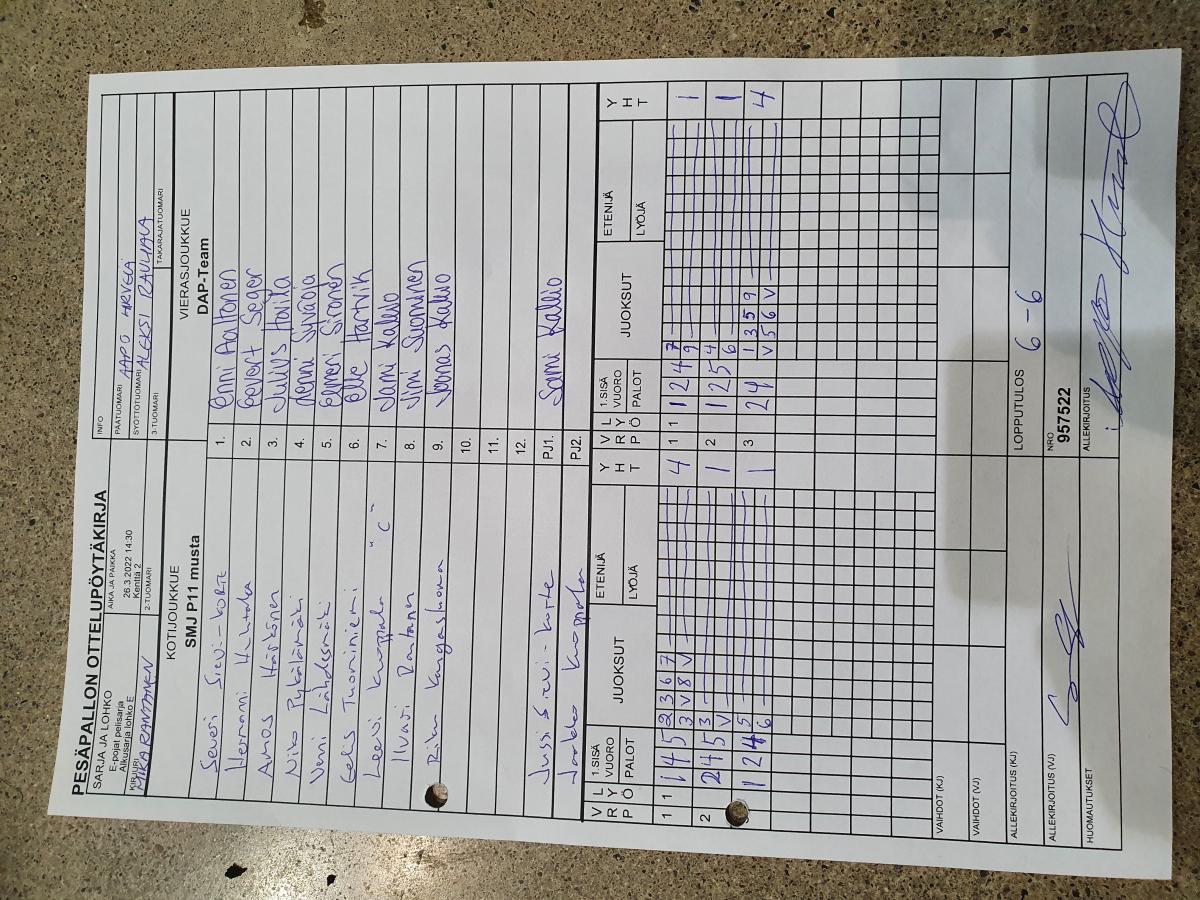 PESÄPALLON OTTELUPÖYTÄKIRJA
SARJA JA LOHKO
E-pojat pelisarja
Alkusarja lohko E
AIKA JA PAIKKA
26.3.2022 14:30
Kenttä 2
INFO
PÄÄTUOMARI AAPO HIRVELÄ
SYÖTTÖTUOMARI ALEKSI RAUHALA
KIRJURI MIKA RANTANEN
2-TUOMARI
3-TUOMARI
TAKARAJATUOMARI
KOTIJOUKKUE
SMJ P11 musta
VIERASJOUKKUE
DAP-Team
Severi Sievi-Korte 1. Onni Aaltonen
Hermanni Huhtala 2. Eevert Seger
Aamos Häkkönen 3. Julius Hovila
Niko Pykälämäki 4.
Veeni Lähdesmäki 5. Eemeri Sironen
Eelis Tuominiemi 6. Olle Hartvik
Leevi Kuoppala "C" 7. Jami Kallio
Iivari Rantanen 8. Jimi Suominen
Riku Kangasluoma 9. Joonas Kallio
10.
11.
12.
Jussi Sievi-Korte PJ1. Sami Kallio
Jaakko Kuoppala PJ2.
V R LYÖ 1.SISÄ VUORO PALOT JUOKSUT ETENIJÄ LYÖJÄ YHT
V R LYÖ 1.SISÄ VUORO PALOT JUOKSUT ETENIJÄ LYÖJÄ YHT
1 1 1 4 5 2 3 6 7 4 1 1 1 2 4 7 1
3 V 8 V 9
2 2 4 5 3 1 2 1 2 5 4 1
V 6
1 2 4 5 1 3 2 4 1 3 5 9 4
6 V 5 6 V
VAIHDOT (KJ)
VAIHDOT (VJ)
ALLEKIRJOITUS (KJ)
LOPPUTULOS 6 - 6
ALLEKIRJOITUS (VJ)
NRO
957522
HUOMAUTUKSET
ALLEKIRJOITUS